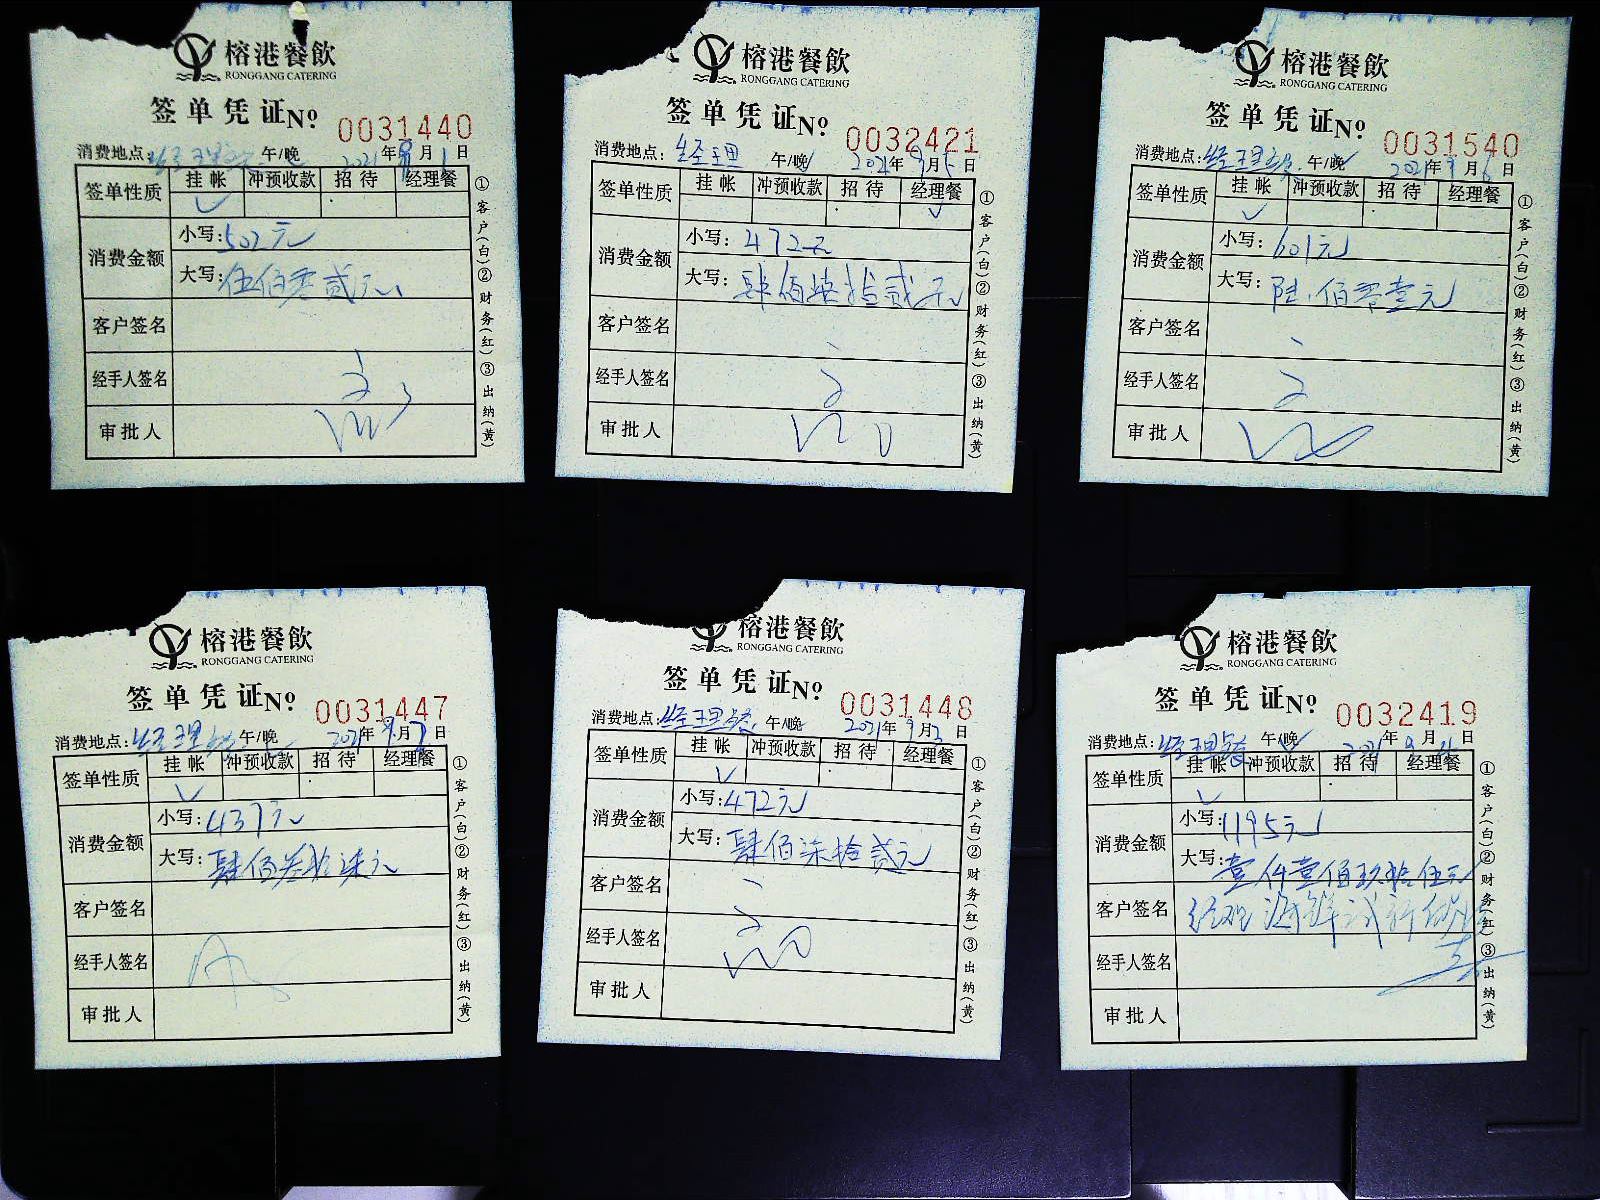 榕港餐飲
RONGGANG CATERING
签单凭证No 0031440
消费地点: 午/晚 2021年9月1日
签单性质 挂帐 冲预收款 招待 经理餐
消费金额
小写:502元
大写:伍佰零贰元
客户签名
经手人签名
审批人
①客户(白)②财务(红)③出纳(黄)
榕港餐飲
RONGGANG CATERING
签单凭证No 0032421
消费地点:经理 午/晚 2021年9月5日
签单性质 挂帐 冲预收款 招待 经理餐
消费金额
小写:472元
大写:肆佰柒拾贰元
客户签名
经手人签名
审批人
①客户(白)②财务(红)③出纳(黄)
榕港餐飲
RONGGANG CATERING
签单凭证No 0031540
消费地点:经理餐 午/晚 2021年9月6日
签单性质 挂帐 冲预收款 招待 经理餐
消费金额
小写:601元
大写:陆佰零壹元
客户签名
经手人签名
审批人
①客户(白)②财务(红)③出纳(黄)
榕港餐飲
RONGGANG CATERING
签单凭证No 0031447
消费地点:经理餐 午/晚 2021年9月7日
签单性质 挂帐 冲预收款 招待 经理餐
消费金额
小写:437元
大写:肆佰叁拾柒元
客户签名
经手人签名
审批人
①客户(白)②财务(红)③出纳(黄)
榕港餐飲
RONGGANG CATERING
签单凭证No 0031448
消费地点:经理餐 午/晚 2021年9月2日
签单性质 挂帐 冲预收款 招待 经理餐
消费金额
小写:472元
大写:肆佰柒拾贰元
客户签名
经手人签名
审批人
①客户(白)②财务(红)③出纳(黄)
榕港餐飲
RONGGANG CATERING
签单凭证No 0032419
消费地点:经理餐 午/晚 2021年9月4日
签单性质 挂帐 冲预收款 招待 经理餐
消费金额
小写:1195元
大写:壹仟壹佰玖拾伍元
客户签名
经手人签名
审批人
①客户(白)②财务(红)③出纳(黄)